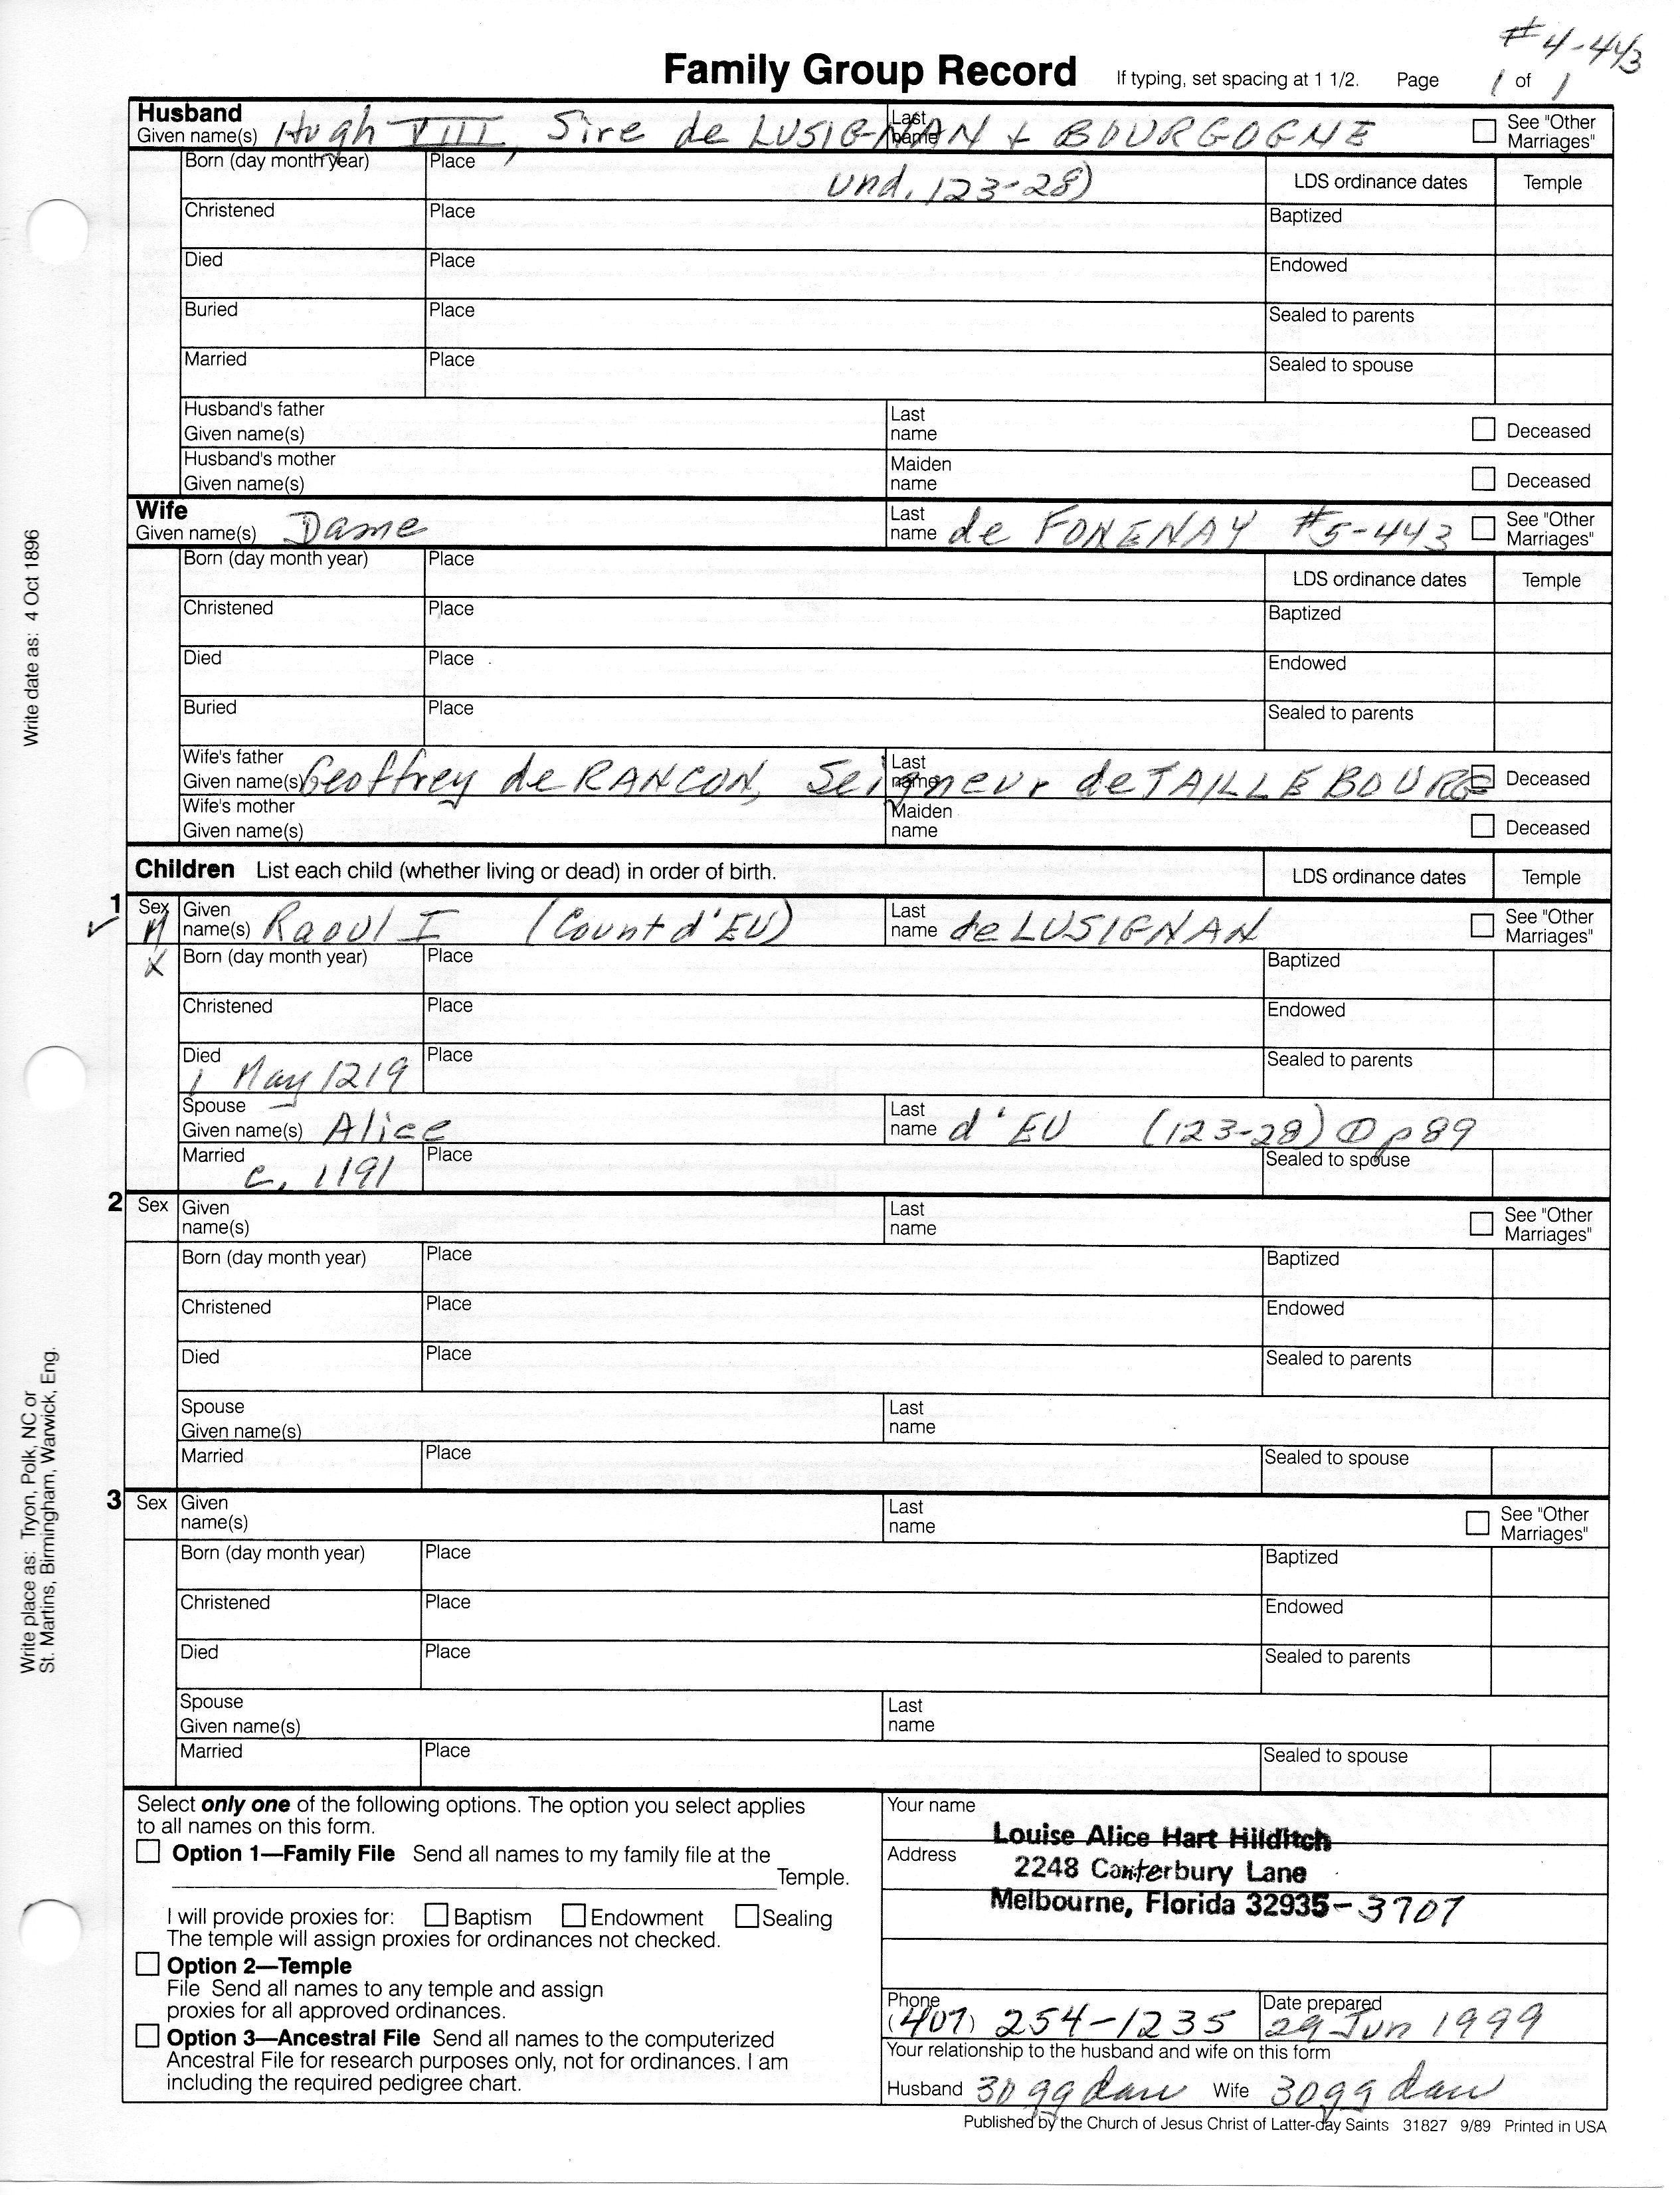 #4-443
Family Group Record If typing, set spacing at 1 1/2. Page 1 of 1
Husband
Given name(s) Hugh VIII, Sire de LUSIGNAN + BOURGOGNE Last name See "Other Marriages"
Born (day month year) Place und. 123-28) LDS ordinance dates Temple
Christened Place Baptized
Died Place Endowed
Buried Place Sealed to parents
Married Place Sealed to spouse
Husband's father
Given name(s) Last name Deceased
Husband's mother
Given name(s) Maiden name Deceased
Wife
Given name(s) Dame Last name de FONENAY #5-443 See "Other Marriages"
Born (day month year) Place LDS ordinance dates Temple
Christened Place Baptized
Died Place Endowed
Buried Place Sealed to parents
Wife's father
Given name(s) Geoffrey de RANCON, Seigneur de TAILLEBOURG Last name Deceased
Wife's mother
Given name(s) Maiden name Deceased
Children List each child (whether living or dead) in order of birth. LDS ordinance dates Temple
1 Sex M Given name(s) Raoul I (Count d'EU) Last name de LUSIGNAN See "Other Marriages"
X Born (day month year) Place Baptized
Christened Place Endowed
Died 1 May 1219 Place Sealed to parents
Spouse
Given name(s) Alice Last name d'EU (123-28) ① p 89
Married c. 1191 Place Sealed to spouse
2 Sex Given name(s) Last name See "Other Marriages"
Born (day month year) Place Baptized
Christened Place Endowed
Died Place Sealed to parents
Spouse
Given name(s) Last name
Married Place Sealed to spouse
3 Sex Given name(s) Last name See "Other Marriages"
Born (day month year) Place Baptized
Christened Place Endowed
Died Place Sealed to parents
Spouse
Given name(s) Last name
Married Place Sealed to spouse
Select only one of the following options. The option you select applies
to all names on this form.
Option 1—Family File Send all names to my family file at the
Temple.
I will provide proxies for: Baptism Endowment Sealing
The temple will assign proxies for ordinances not checked.
Option 2—Temple
File Send all names to any temple and assign
proxies for all approved ordinances.
Option 3—Ancestral File Send all names to the computerized
Ancestral File for research purposes only, not for ordinances. I am
including the required pedigree chart.
Your name Louise Alice Hart Hilditch
Address 2248 Canterbury Lane
Melbourne, Florida 32935-3707
Phone (407) 254-1235 Date prepared 29 Jun 1999
Your relationship to the husband and wife on this form
Husband 30 gg dau Wife 30 gg dau
Published by the Church of Jesus Christ of Latter-day Saints 31827 9/89 Printed in USA
Write date as: 4 Oct 1896
Write place as: Tryon, Polk, NC or
St. Martins, Birmingham, Warwick, Eng.